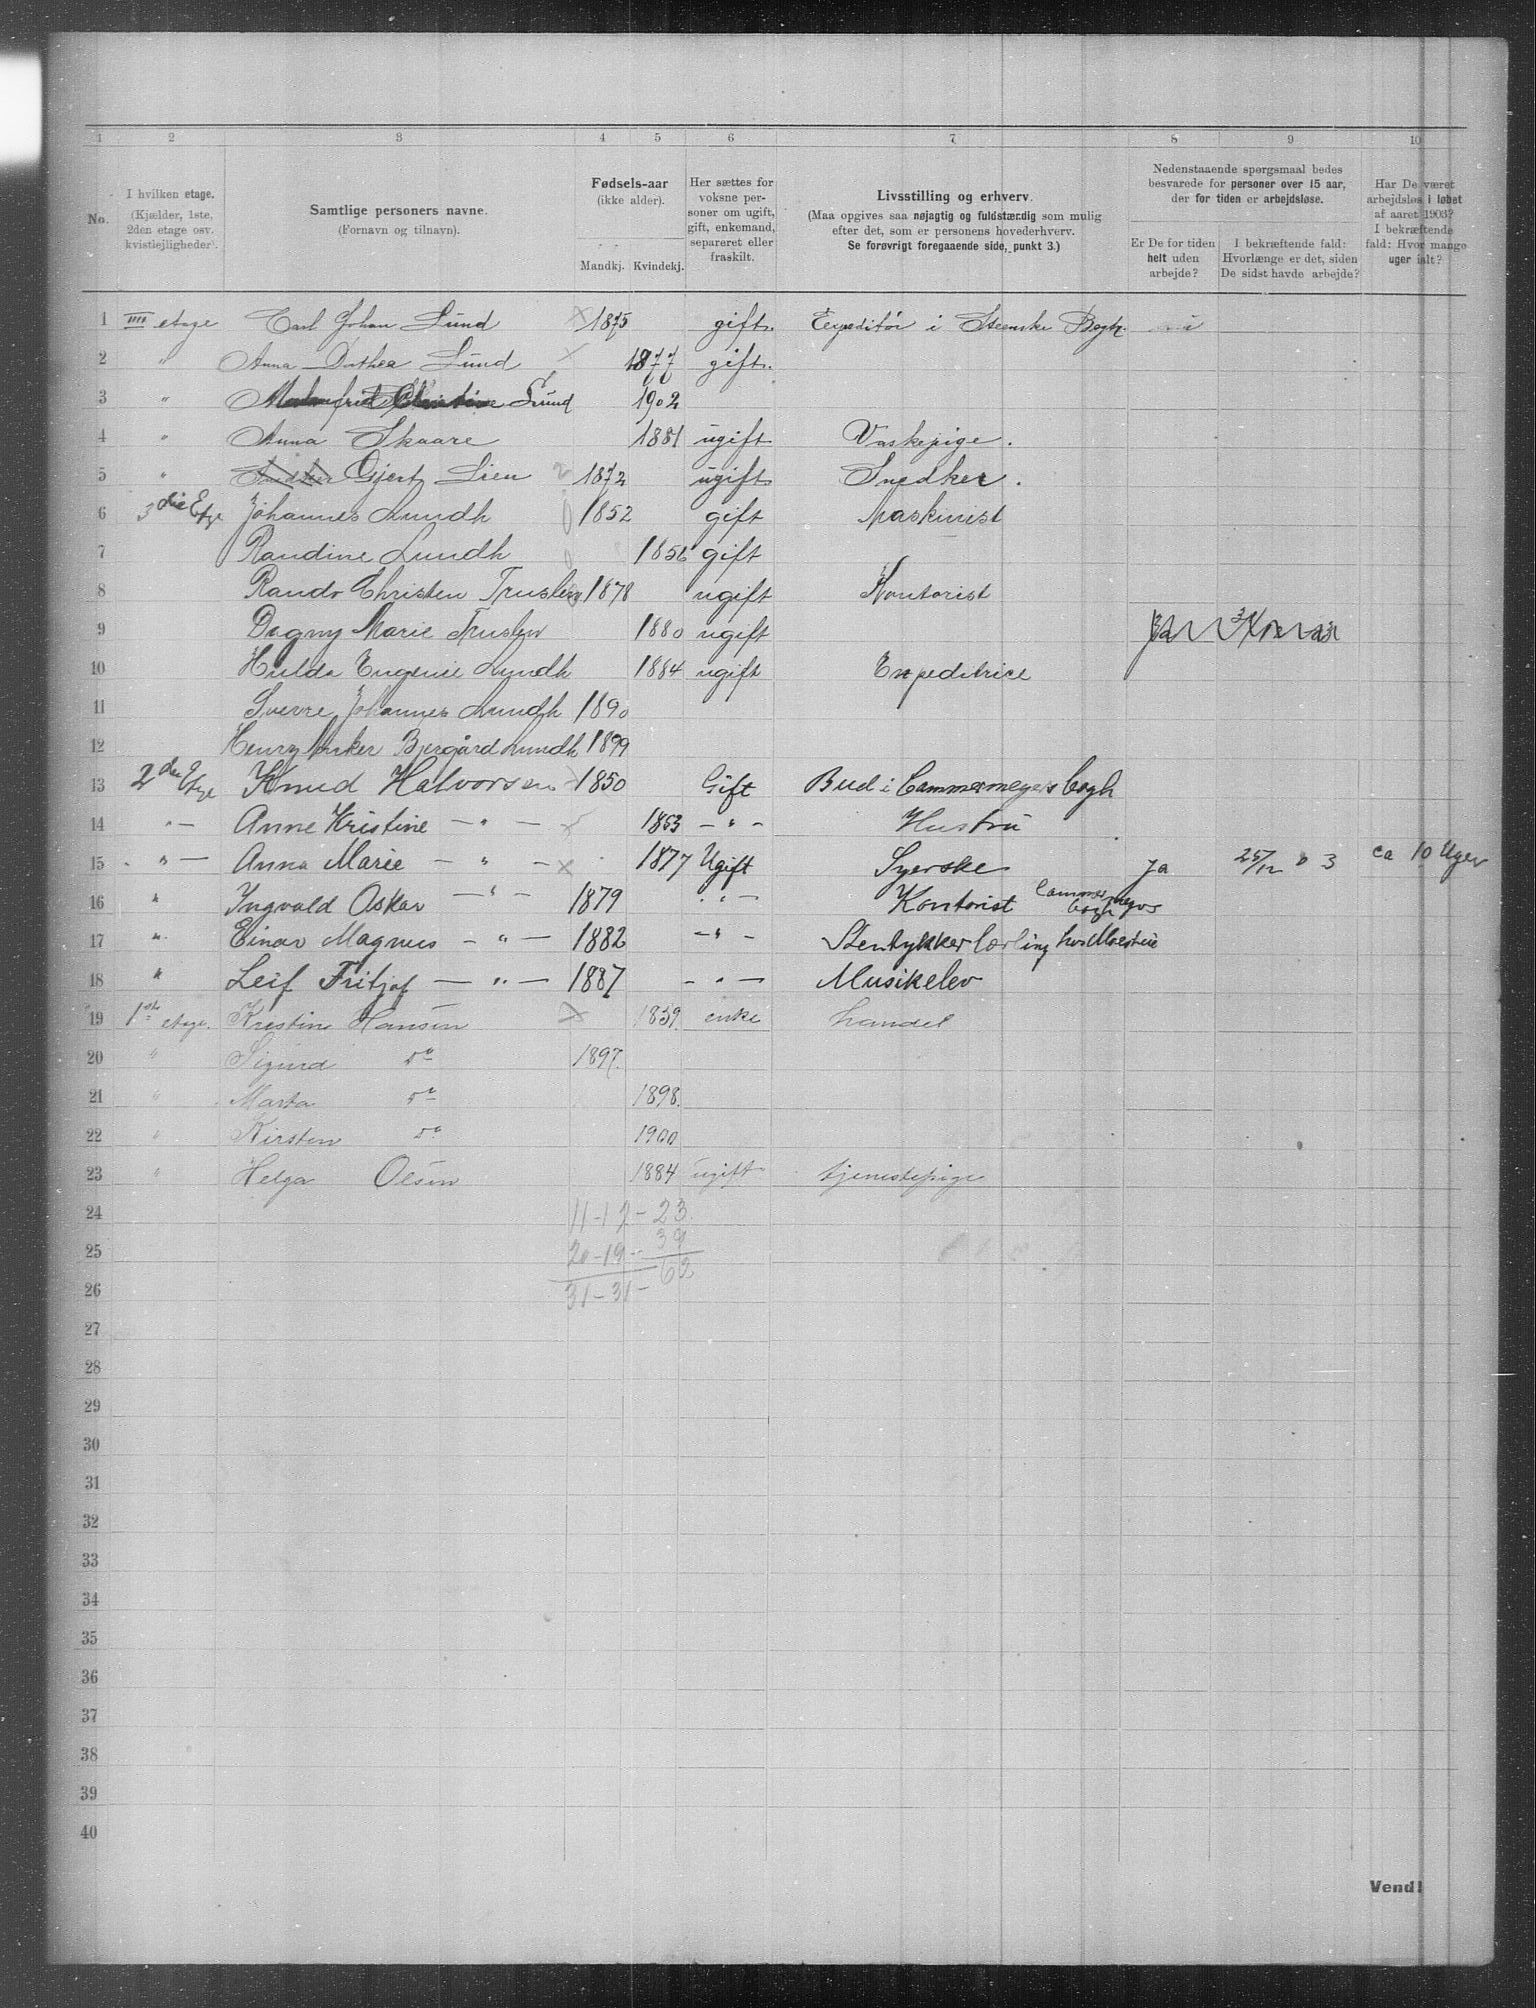 1 2 3 4 5 6 7 8 9 10
No.
I hvilken etage.
(Kjælder, 1ste,
2den etage osv.
kvistlejligheder).
Samtlige personers navne.
(Fornavn og tilnavn).
Fødsels-aar
(ikke alder).
Mandkj. Kvindekj.
Her sættes for
voksne per-
soner om ugift,
gift, enkemand,
separeret eller
fraskilt.
Livsstilling og erhverv.
(Maa opgives saa nøjagtig og fuldstændig som mulig
efter det, som er personens hovederhverv.
Se forøvrigt foregaaende side, punkt 3.)
Nedenstaaende spørgsmaal bedes
besvarede for personer over 15 aar,
der for tiden er arbejdsløse.
Er De for tiden
helt uden
arbejde?
I bekræftende fald:
Hvorlænge er det, siden
De sidst havde arbejde?
Har De været
arbejdsløs i løbet
af aaret 1903?
I bekræftende
fald: Hvor mange
uger ialt?
1 IIII etage Carl Johan Lund 1875 gift. Expeditør i Steenske Bogtr.
2 " Anna Dorthea Lund 1877 gift.
3 " Christine Lund 1902
4 " Anna Skaare 1881 ugift Vaskepige.
5 " Gjert Lien 1872 ugift Snedker.
6 3die Etge Johannes Lundh 1852 gift Maskinist
7 Randine Lundh 1856 gift
8 Christen Truslew 1878 ugift Kontorist
9 Dagny Marie Truslew 1880 ugift
10 Hulda Eugenie Lundh 1884 ugift Expeditrice
11 Sverre Johannes Lundh 1890
12 Henry Lundh 1899
13 2den Etge Knud Halvorsen 1850 Gift Bud i Cammermeyers bogh
14 " — Anne Kristine — " — 1853 — " — Hustru
15 " — Anna Marie — " — 1877 Ugift Syerske Ja 25/12 03 ca 10 Uger
16 " Ingvald Oskar — " — 1879 " — Kontorist Cammermeyers bogh
17 " Einar Magnus — " — 1882 — " — Stentrykkerlærling hos
18 " Leif Fritjof — " — 1887 — " — Musikelev
19 1ste etage. Kristine Hansen 1859 enke handel
20 " Sigurd do 1897.
21 " Marta do 1898.
22 " Kirsten do 1900
23 " Helga Olsen 1884 ugift tjenestepige
24 11-12-23
25 20-19-39
26 31-31-62
27
28
29
30
31
32
33
34
35
36
37
38
39
40
Vend!